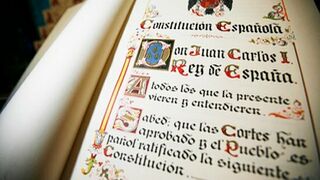 Constitución Española
Don Juan Carlos I
Rey de España
A todos los que la presente
vieren y entendieren
Sabed: que las Cortes han
aprobado y el Pueblo es-
pañol ratificado la siguiente
Constitución